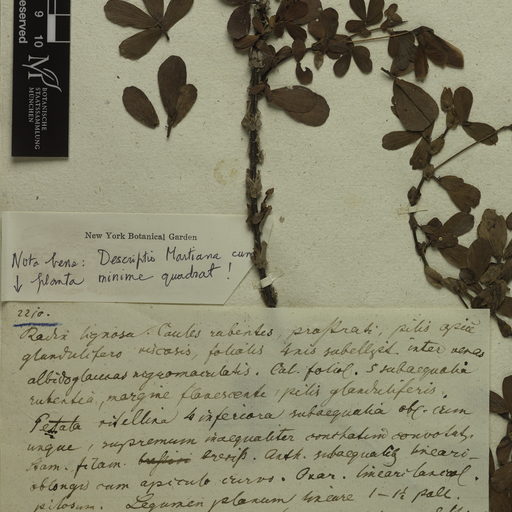 reserved
9 10
BOTANISCHE
STAATSSAMMLUNG
MÜNCHEN
New York Botanical Garden
Nota bene: Descriptio Martiana cum
↓ planta minime quadrat!
2210.
Radix lignosa. Caules rubentes, prostrati, pilis apice
glandulifero viscosis, foliolis 4nis subellipt. inter venas
albidoglaucas nigromaculatis. Cal. foliol. 5 subaequalia
rubentia, margine flavescente, pilis glanduliferis.
Petala vitellina 4 inferiora subaequalia obl. cum
ungue, supremum inaequaliter conchatum convolut.
Stam. filam. breviss. Anth. subaequales lineari-
oblongis cum apiculo curvo. Ovar. lineari lanceol.
pilosum. Legumen planum lineare 1-1½ poll.